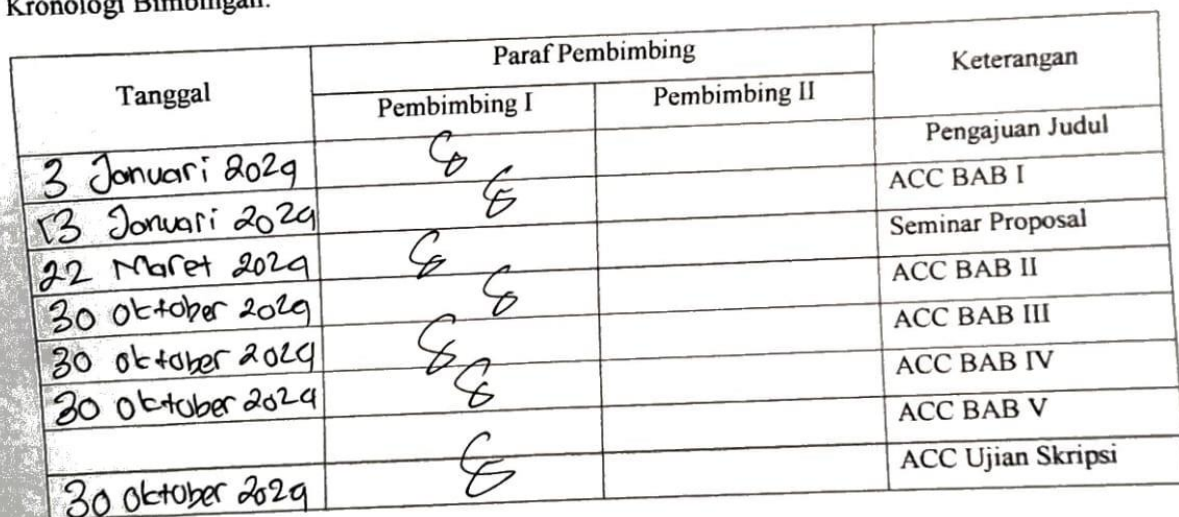 Kronologi Bimbingan:
Tanggal
Paraf Pembimbing
Keterangan
Pembimbing I
Pembimbing II
3 Januari 2024
Pengajuan Judul
13 Januari 2024
ACC BAB I
22 Maret 2024
Seminar Proposal
30 Oktober 2024
ACC BAB II
30 Oktober 2024
ACC BAB III
30 Oktober 2024
ACC BAB IV
ACC BAB V
30 Oktober 2024
ACC Ujian Skripsi